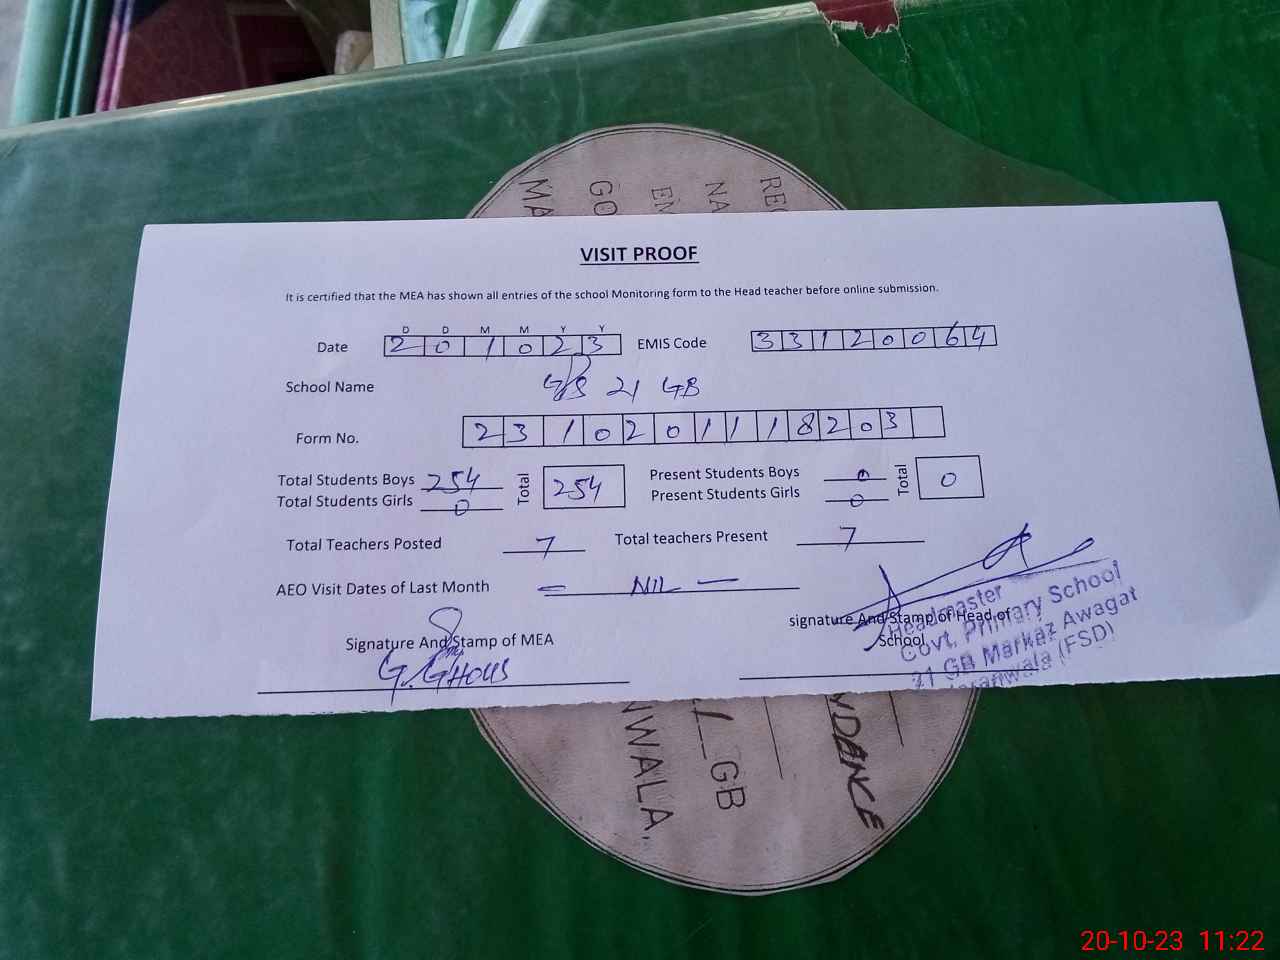 REC
NA
EM
GO
MA
VISIT PROOF
It is certified that the MEA has shown all entries of the school Monitoring form to the Head teacher before online submission.
D D M M Y Y
Date 2 0 1 0 2 3 EMIS Code 3 3 1 2 0 0 6 4
School Name GPS 21 GB
Form No. 2 3 1 0 2 0 1 1 1 8 2 0 3
Total Students Boys 254 Total 254 Present Students Boys 0 Total 0
Total Students Girls 0 Present Students Girls 0
Total Teachers Posted 7 Total teachers Present 7
AEO Visit Dates of Last Month - NIL -
Signature And Stamp of MEA
G. GHOUS
signature And Stamp of Head of
School
Headmaster
Govt. Primary School
21 GB Markaz Awagat
Jaranwala (FSD)
NWALA.
1_GB
NDANCE
20-10-23 11:22